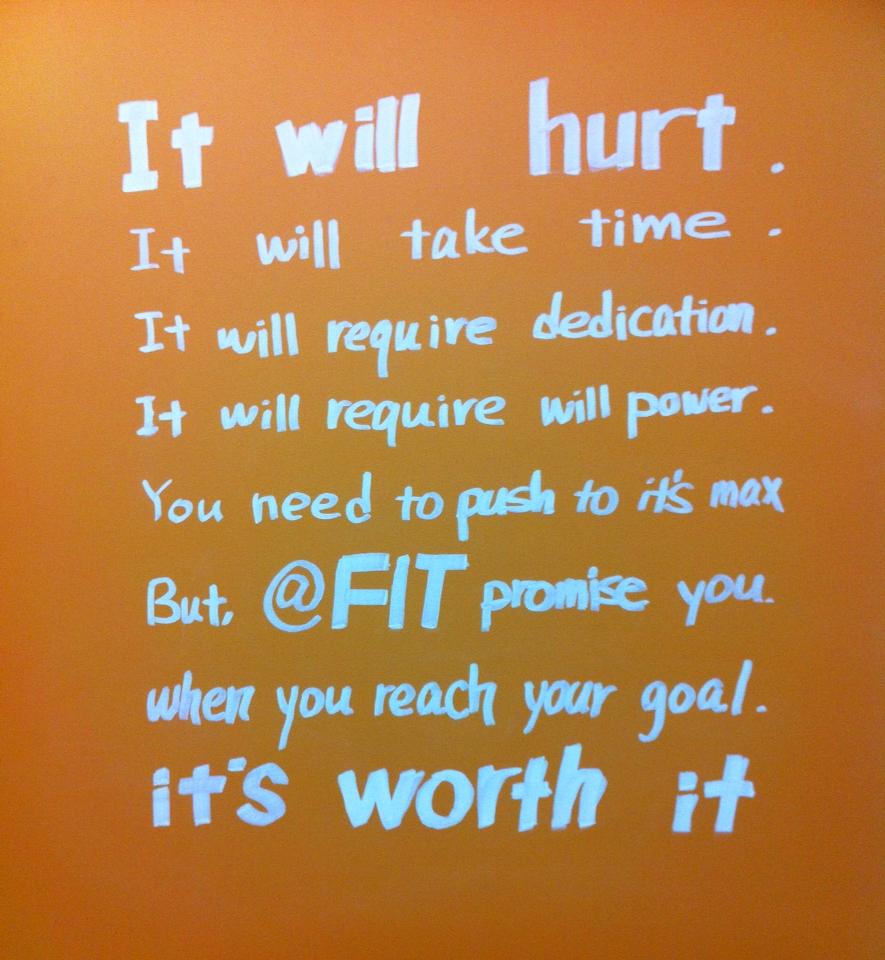 It will hurt.
It will take time.
It will require dedication.
It will require will power.
You need to push to it's max
But, @FIT promise you.
when you reach your goal.
it's worth it